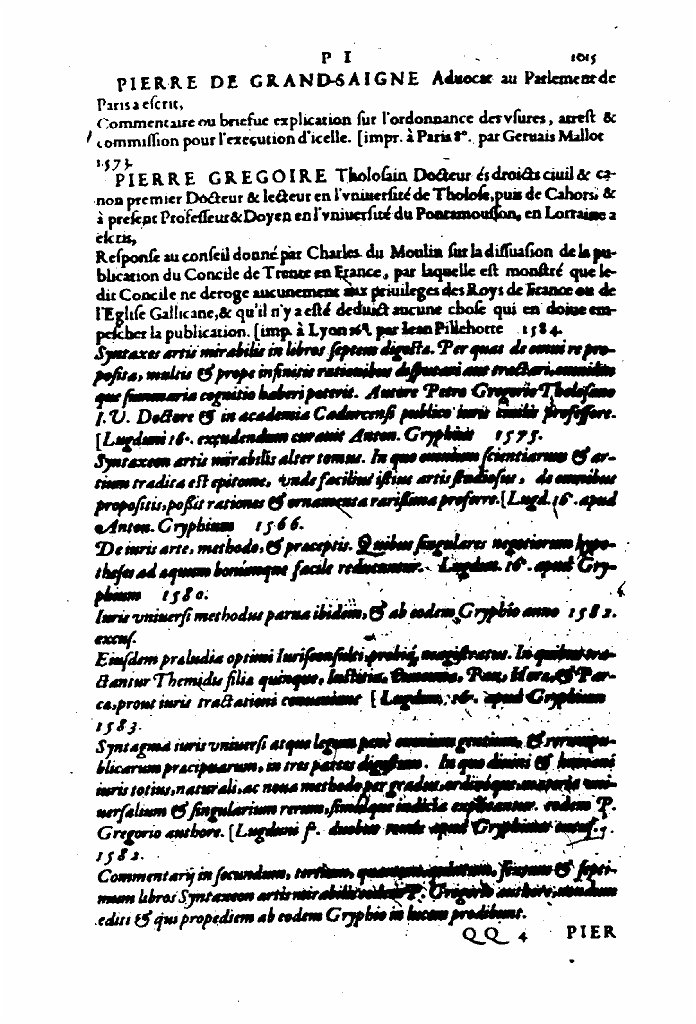 P I 1015
PIERRE DE GRAND-SAIGNE Aduocat au Parlement de
Paris a eſcrit,
Commentaire ou briefue explication ſur l'ordonnance des vſures, arreſt &
commiſſion pour l'execution d'icelle. [impr. à Paris 8°. par Geruais Mallot
1573.
PIERRE GREGOIRE Tholoſain Docteur és droicts ciuil & ca-
non premier Docteur & lecteur en l'vniuerſité de Tholoſe, puis de Cahors, &
à preſent Profeſſeur & Doyen en l'vniuerſité du Pontamouſſon, en Lorraine a
eſcrit,
Reſponſe au conſeil donné par Charles du Moulin ſur la diſſuaſion de la pu-
blication du Concile de Trente en France, par laquelle eſt monſtré que le-
dit Concile ne deroge aucunement aux priuileges des Roys de France ou de
l'Egliſe Gallicane, & qu'il n'y a eſté deduict aucune choſe qui en doiue em-
peſcher la publication. [imp. à Lyon 16°. par Iean Pillehotte 1584.
Syntaxes artis mirabilis in libros ſeptem digeſta. Per quas de omni re pro-
poſita, multis & prope infinitis rationibus diſputari aut tractari, omniúm-
que ſummaria cognitio haberi poterit. Autore Petro Gregorio Tholoſano
I. V. Doctore & in academia Cadurcenſi publico iuris ciuilis profeſſore.
[Lugduni 16°. excudendum curauit Anton. Gryphius 1575.
Syntaxeon artis mirabilis alter tomus. In quo omnium ſcientiarum & ar-
tium tradita eſt epitome, vnde facilius iſtius artis ſtudioſus, de omnibus
propoſitis, poſſit rationes & ornamenta rariſſima proferre. [Lugd. 16°. apud
Anton. Gryphium 1566.
De iuris arte, methodo, & præceptis. Quibus ſingulares negotiorum hypo-
theſes ad æquum bonúmque facile reducantur. Lugdun. 16°. apud Gry-
phium 1580.
Iuris vniuerſi methodus parua ibidem, & ab eodem Gryphio anno 1582.
excuſ.
Eiuſdem præludia optimi Iuriſconſulti, probíq; magiſtratus. In quibus tra-
ctantur Themidis filiæ quinque, Iuſtitia, Eunomia, Pax, Hora, & Par-
ca, prout iuris tractationi conueniunt [Lugdun. 16°. apud Gryphium
1583.
Syntagma iuris vniuerſi atque legum penè omnium gentium, & rerumpu-
blicarum præcipuarum, in tres partes digeſtum. In quo diuini & humani
iuris totius, naturali, ac noua methodo per gradus, ordinéque, materia vni-
uerſalium & ſingularium rerum, ſimúlque iudicia explicantur. eodem P.
Gregorio authore. [Lugduni f°. duobus apud Gryphium excuſ.
1582.
Commentarij in ſecundum, tertium, quartum, quintum, ſextum & ſepti-
mum libros Syntaxeon artis mirabilis eodem P. Gregorio authore, nondum
editi & qui propediem ab eodem Gryphio in lucem prodibunt.
QQ 4 PIER